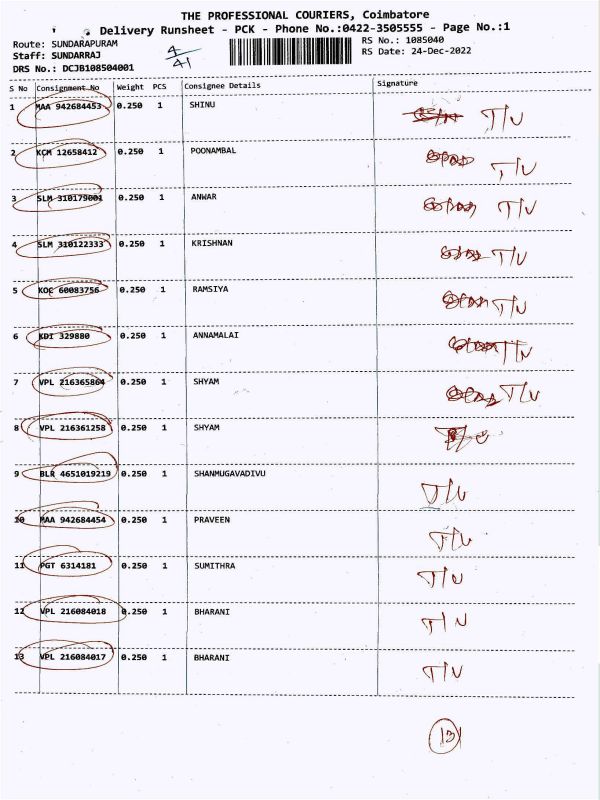 THE PROFESSIONAL COURIERS, Coimbatore
Delivery Runsheet - PCK - Phone No.:0422-3505555 - Page No.:1
Route: SUNDARAPURAM
RS No.: 1085040
Staff: SUNDARRAJ
RS Date: 24-Dec-2022
DRS No.: DCJB108504001
4/41
S No Consignment No Weight PCS Consignee Details Signature
1 MAA 942684453 0.250 1 SHINU T/U
2 KCM 12658412 0.250 1 POONAMBAL T/U
3 SLM 310179001 0.250 1 ANWAR T/U
4 SLM 310122333 0.250 1 KRISHNAN T/U
5 KOC 60083756 0.250 1 RAMSIYA T/U
6 KDI 329880 0.250 1 ANNAMALAI T/U
7 VPL 216365864 0.250 1 SHYAM T/U
8 VPL 216361258 0.250 1 SHYAM
9 BLR 4651019219 0.250 1 SHANMUGAVADIVU T/U
10 MAA 942684454 0.250 1 PRAVEEN T/U
11 PGT 6314181 0.250 1 SUMITHRA T/U
12 VPL 216084018 0.250 1 BHARANI T/U
13 VPL 216084017 0.250 1 BHARANI T/U
13